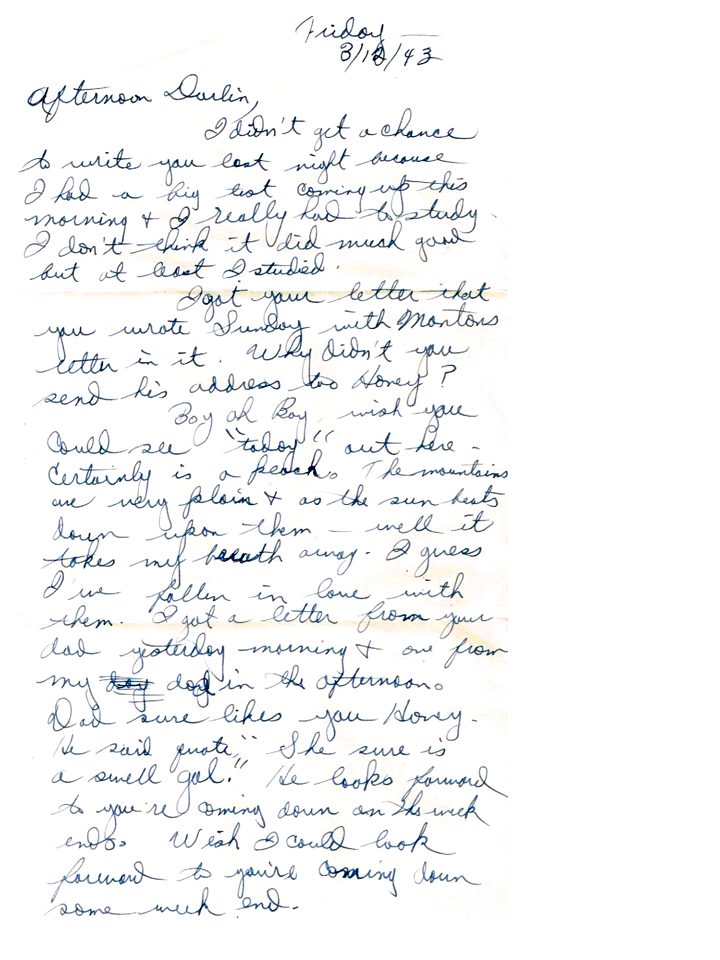 Friday —
3/12/43
Afternoon Darlin,
I didn't get a chance
to write you last night because
I had a big test coming up this
morning & I really had to study.
I don't think it did much good
but at least I studied.
I got your letter that
you wrote Sunday with Mortons
letter in it. Why didn't you
send his address too Honey?
Boy oh Boy, wish you
could see "today" out here -
Certainly is a peach. The mountains
are very plain & as the sun beats
down upon them — well it
takes my breath away. I guess
I've fallen in love with
them. I got a letter from your
dad yesterday morning & one from
my dad in the afternoon.
Dad sure likes you Honey.
He said quote, "She sure is
a swell gal." He looks forward
to you're coming down on the week
ends. Wish I could look
forward to you're coming down
some week end.